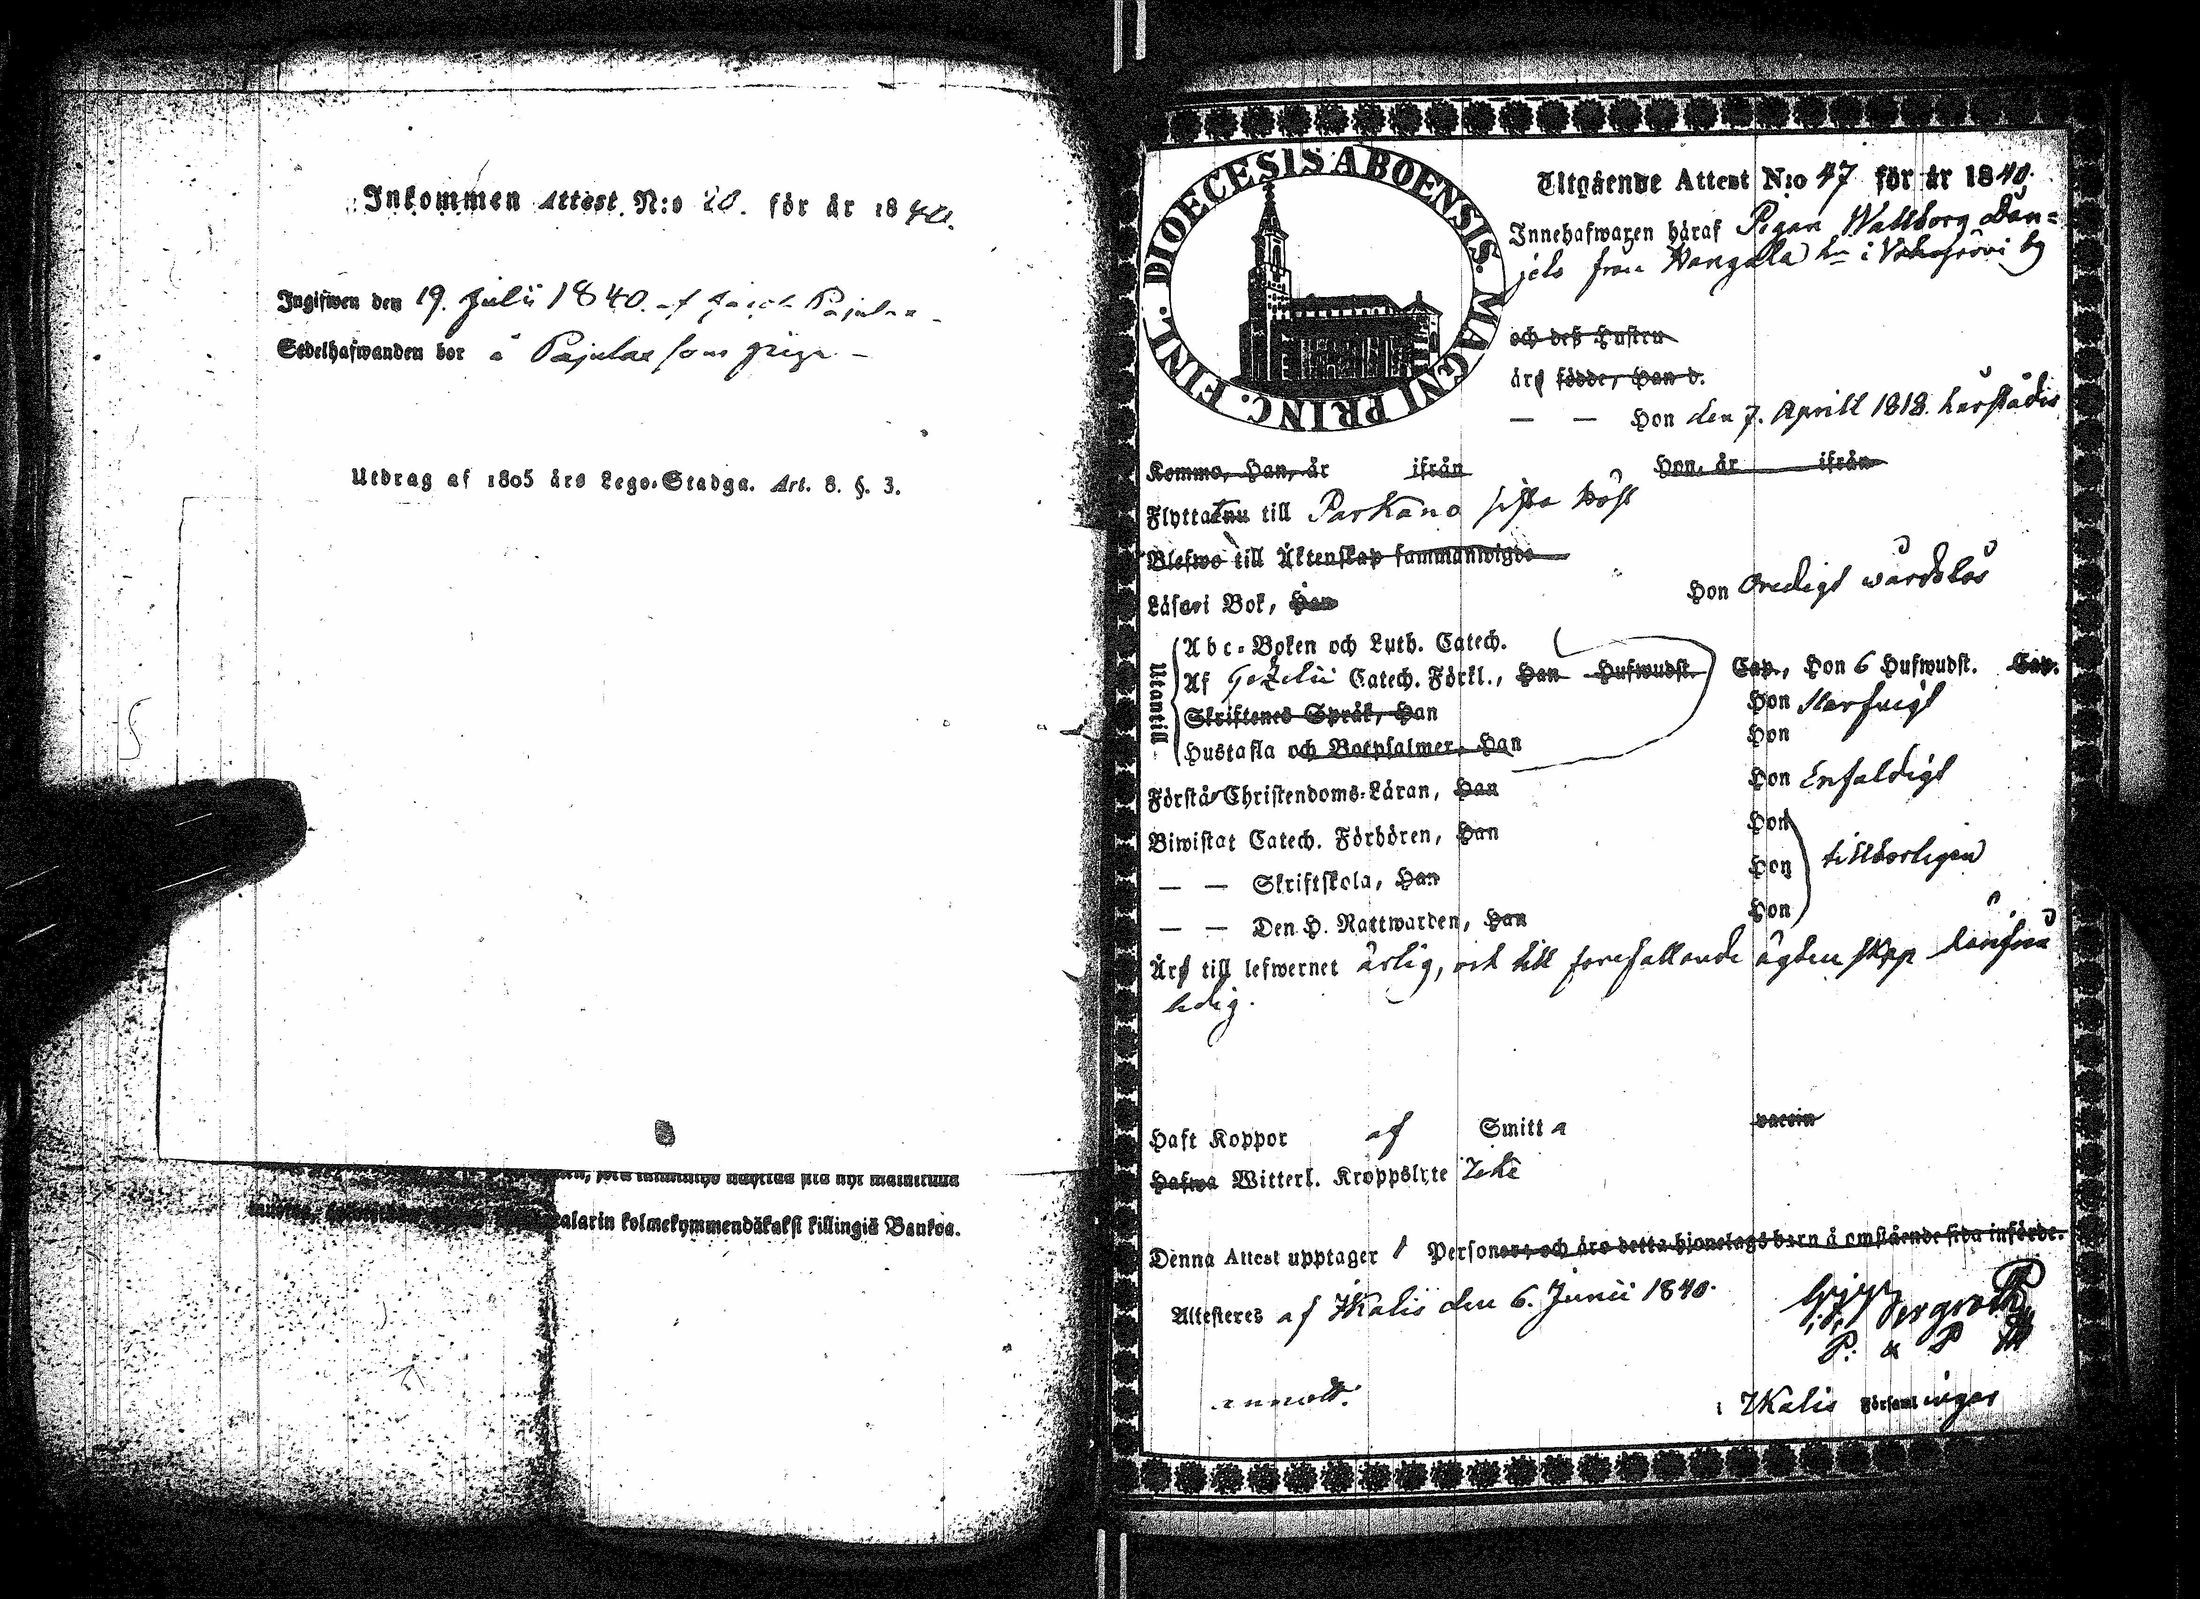 Inkommen Attest N:o 20. för år 1840.
Ingifwen den 19. Julii 1840. af
Sedelhafwanden bor å Pajulas som piga
Utdrag af 1805 års Lego-Stadga. Art. 8. §. 3.
alarin kolmekymmendäkaksi killingiä Bankoa.
DIOECESIS ABOENSIS. MAGNI PRINC. FINL.
Utgående Attest N:o 47 för år 1840.
Innehafwaren häraf Pigan Wallborg Dan=
jels från Hangala hn i by
och deß Hustru
äro födde, Han d.
— — Hon den 7. Aprill 1818. härstädes
Kommo, Han, år ifrån Hon, år ifrån
Flytta till Parkano sista höst
Blefwo till Äktenskap sammanwigde
Läsa i Bok, Han Hon Oredigt wårdslös
Utantill
Abc-Boken och Luth. Catech.
Af Gezelii Catech. Förkl., Han Hufwudst. Cap., Hon 6 Hufwudst. Cap.
Skriftenes Språk, Han Hon
Hustafla och Botpsalmer, Han Hon
Förstå Christendoms-Läran, Han Hon Enfaldigt
Biwistat Catech. Förhören, Han Hon
— — Skriftskola, Han Hon tillbörligen
— — Den H. Nattwarden, Han Hon
Äro till lefwernet ärlig, och till förefallande ägtenskap
ledig.
Haft Koppor af Smitta vaccin
Hafwa Witterl. Kroppslyte Icke
Denna Attest upptager 1 Personer, och äro detta hjonelags barn å omstående sida införde.
Attesteres af IKalis den 6. Junii 1840.
Bergroth
i IKalis Församlingar